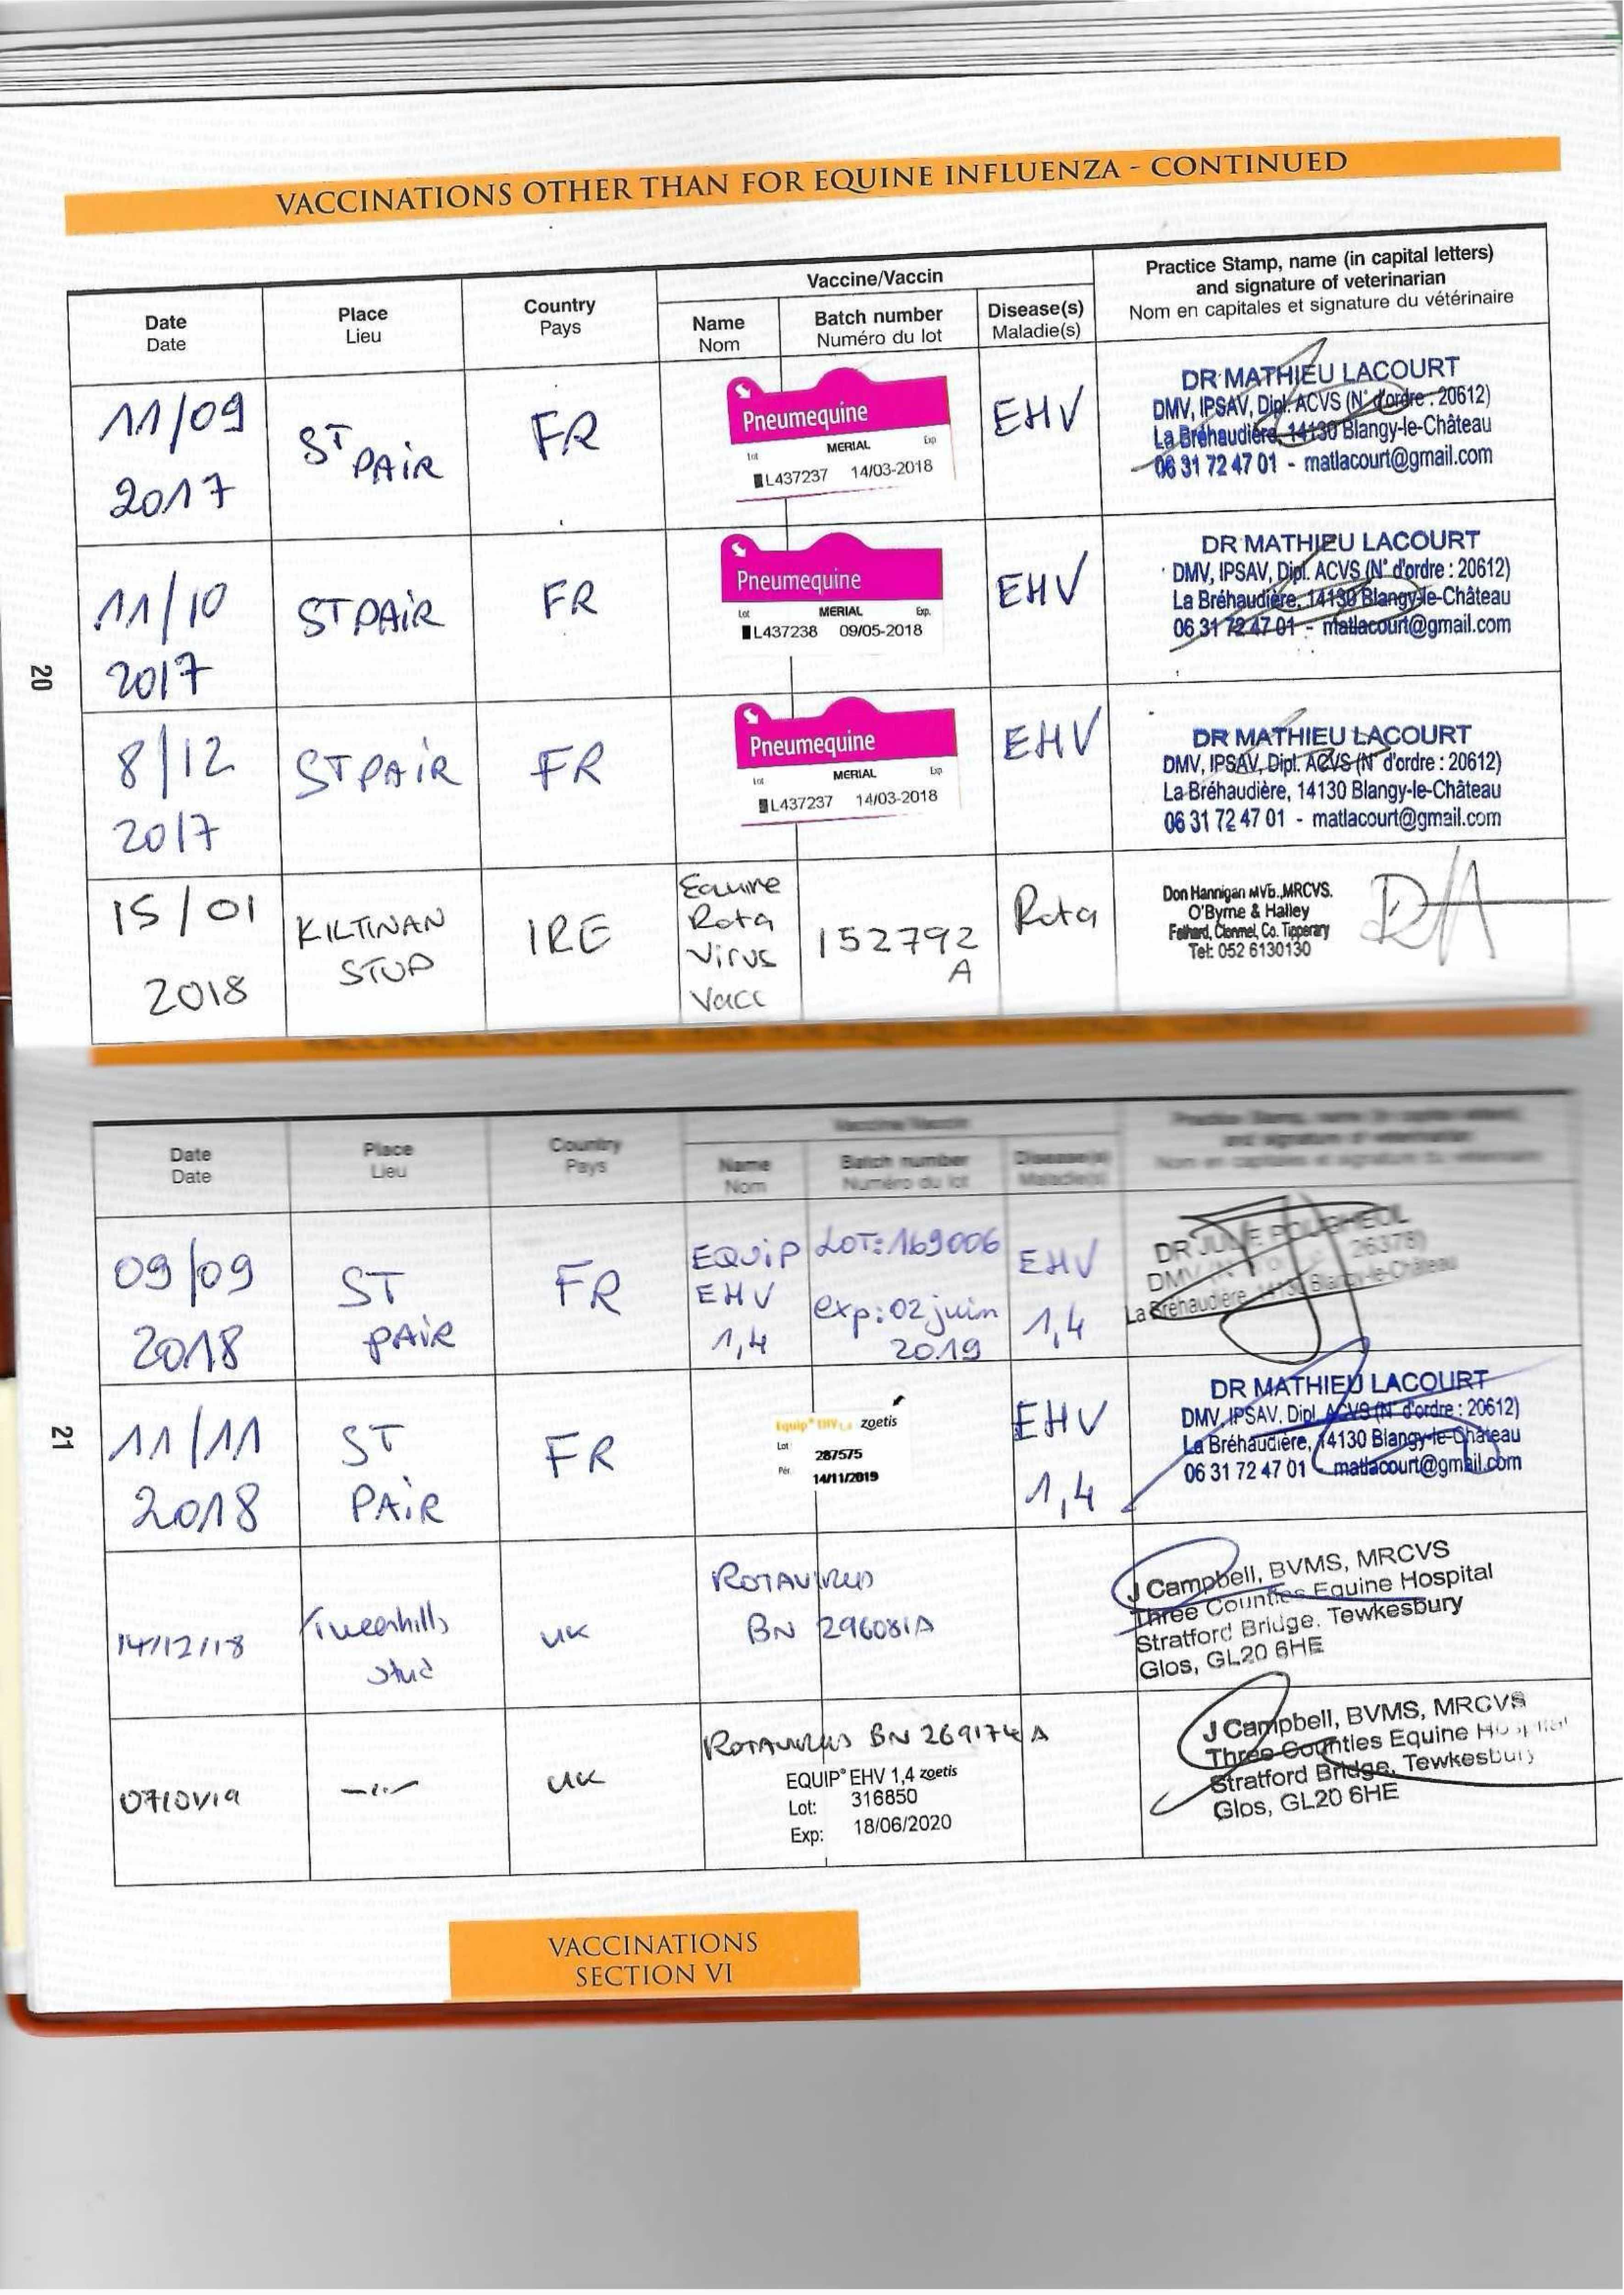 VACCINATIONS OTHER THAN FOR EQUINE INFLUENZA - CONTINUED
Date
Date
Place
Lieu
Country
Pays
Vaccine/Vaccin
Name
Nom
Batch number
Numéro du lot
Disease(s)
Maladie(s)
Practice Stamp, name (in capital letters)
and signature of veterinarian
Nom en capitales et signature du vétérinaire
11/09
2017
ST
PAIR
FR
Pneumequine
MERIAL
Lot
Exp
L437237 14/03-2018
EHV
DR MATHIEU LACOURT
DMV, IPSAV, Dipl. ACVS (N° d'ordre : 20612)
La Bréhaudière, 14130 Blangy-le-Château
06 31 72 47 01 - matlacourt@gmail.com
11/10
2017
ST PAIR
FR
Pneumequine
Lot MERIAL Exp.
L437238 09/05-2018
EHV
DR MATHIEU LACOURT
DMV, IPSAV, Dipl. ACVS (N° d'ordre : 20612)
La Bréhaudière, 14130 Blangy-le-Château
06 31 72 47 01 - matlacourt@gmail.com
20
8/12
2017
ST PAIR
FR
Pneumequine
Lot MERIAL Exp
L437237 14/03-2018
EHV
DR MATHIEU LACOURT
DMV, IPSAV, Dipl. ACVS (N° d'ordre : 20612)
La Bréhaudière, 14130 Blangy-le-Château
06 31 72 47 01 - matlacourt@gmail.com
15/01
2018
KILTINAN
STUD
IRE
Equine
Rota
Virus
Vacc
152792
A
Rota
Don Hannigan MVB.,MRCVS.
O'Byrne & Halley
Fethard, Clonmel, Co. Tipperary
Tel: 052 6130130
Date
Date
Place
Lieu
Country
Pays
Vaccine/Vaccin
Name
Nom
Batch number
Numéro du lot
Disease(s)
Maladie(s)
Practice Stamp, name (in capital letters)
and signature of veterinarian
Nom en capitales et signature du vétérinaire
09/09
2018
ST
PAIR
FR
EQUIP
EHV
1,4
LOT: 169006
exp: 02 juin
2019
EHV
1,4
DR JULIE POUGHEOL
DMV 26378)
La Bréhaudière, 14130 Blangy-le-Château
21
11/11
2018
ST
PAIR
FR
Equip® EHV1,4 zoetis
Lot 287575
Pér. 14/11/2019
EHV
1,4
DR MATHIEU LACOURT
DMV, IPSAV, Dipl. ACVS (N° d'ordre : 20612)
La Bréhaudière, 14130 Blangy-le-Château
06 31 72 47 01 matlacourt@gmail.com
14/12/18
Tweenhills
Stud
UK
ROTAVIRUS
BN 296081A
J Campbell, BVMS, MRCVS
Three Counties Equine Hospital
Stratford Bridge, Tewkesbury
Glos, GL20 6HE
07/01/19
UK
ROTAVIRUS BN 269174A
EQUIP® EHV 1,4 zoetis
Lot: 316850
Exp: 18/06/2020
J Campbell, BVMS, MRCVS
Three Counties Equine Hospital
Stratford Bridge, Tewkesbury
Glos, GL20 6HE
VACCINATIONS
SECTION VI